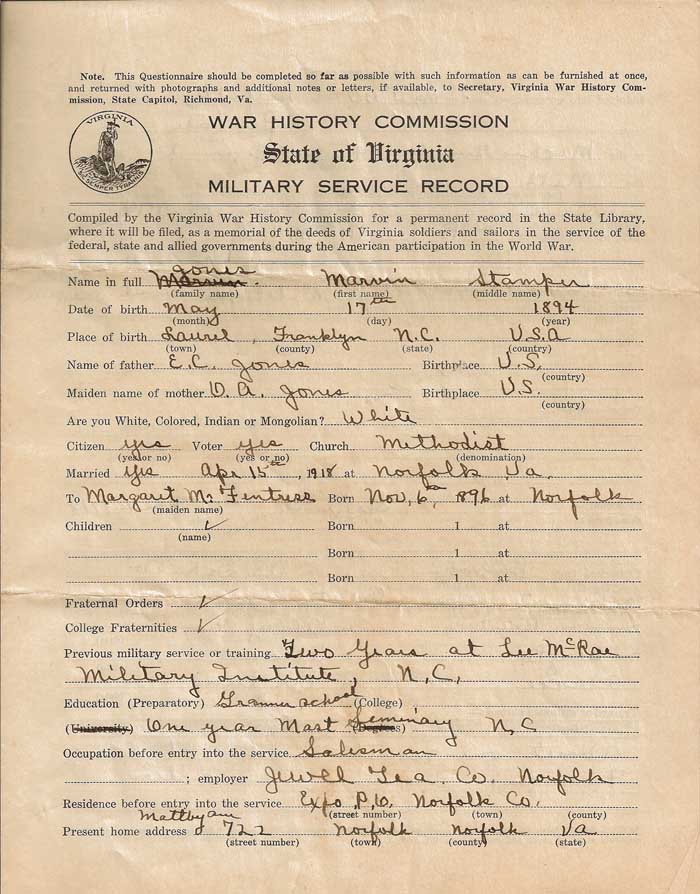 Note. This Questionnaire should be completed so far as possible with such information as can be furnished at once,
and returned with photographs and additional notes or letters, if available, to Secretary, Virginia War History Com-
mission, State Capitol, Richmond, Va.
VIRGINIA
SIC SEMPER TYRANNIS
WAR HISTORY COMMISSION
State of Virginia
MILITARY SERVICE RECORD
Compiled by the Virginia War History Commission for a permanent record in the State Library,
where it will be filed, as a memorial of the deeds of Virginia soldiers and sailors in the service of the
federal, state and allied governments during the American participation in the World War.
Jones
Name in full Marvin. Marvin Stamper
(family name) (first name) (middle name)
Date of birth May 17th 1894
(month) (day) (year)
Place of birth Laurel, Franklyn N.C. U.S.A
(town) (county) (state) (country)
Name of father E.C. Jones Birthplace U.S.
(country)
Maiden name of mother D. A. Jones Birthplace U.S.
(country)
Are you White, Colored, Indian or Mongolian? White
Citizen yes Voter yes Church Methodist
(yes or no) (yes or no) (denomination)
Married yes Apr 15th, 1918 at Norfolk Va.
To Margaret Mc Fentress Born Nov, 6th 1896 at Norfolk
(maiden name)
Children ✓ Born 1 at
(name)
Born 1 at
Born 1 at
Fraternal Orders ✓
College Fraternities ✓
Previous military service or training Two Years at Lee McRae
Military Institute, N.C.
Education (Preparatory) Grammer school (College)
(University) One year Mast Seminary N,C
Occupation before entry into the service Salesman
; employer Jewell Tea Co. Norfolk
Residence before entry into the service Expo, P.O. Norfolk Co.
(street number) (town) (county)
Present home address 722 Norfolk Norfolk Va
(street number) (town) (county) (state)